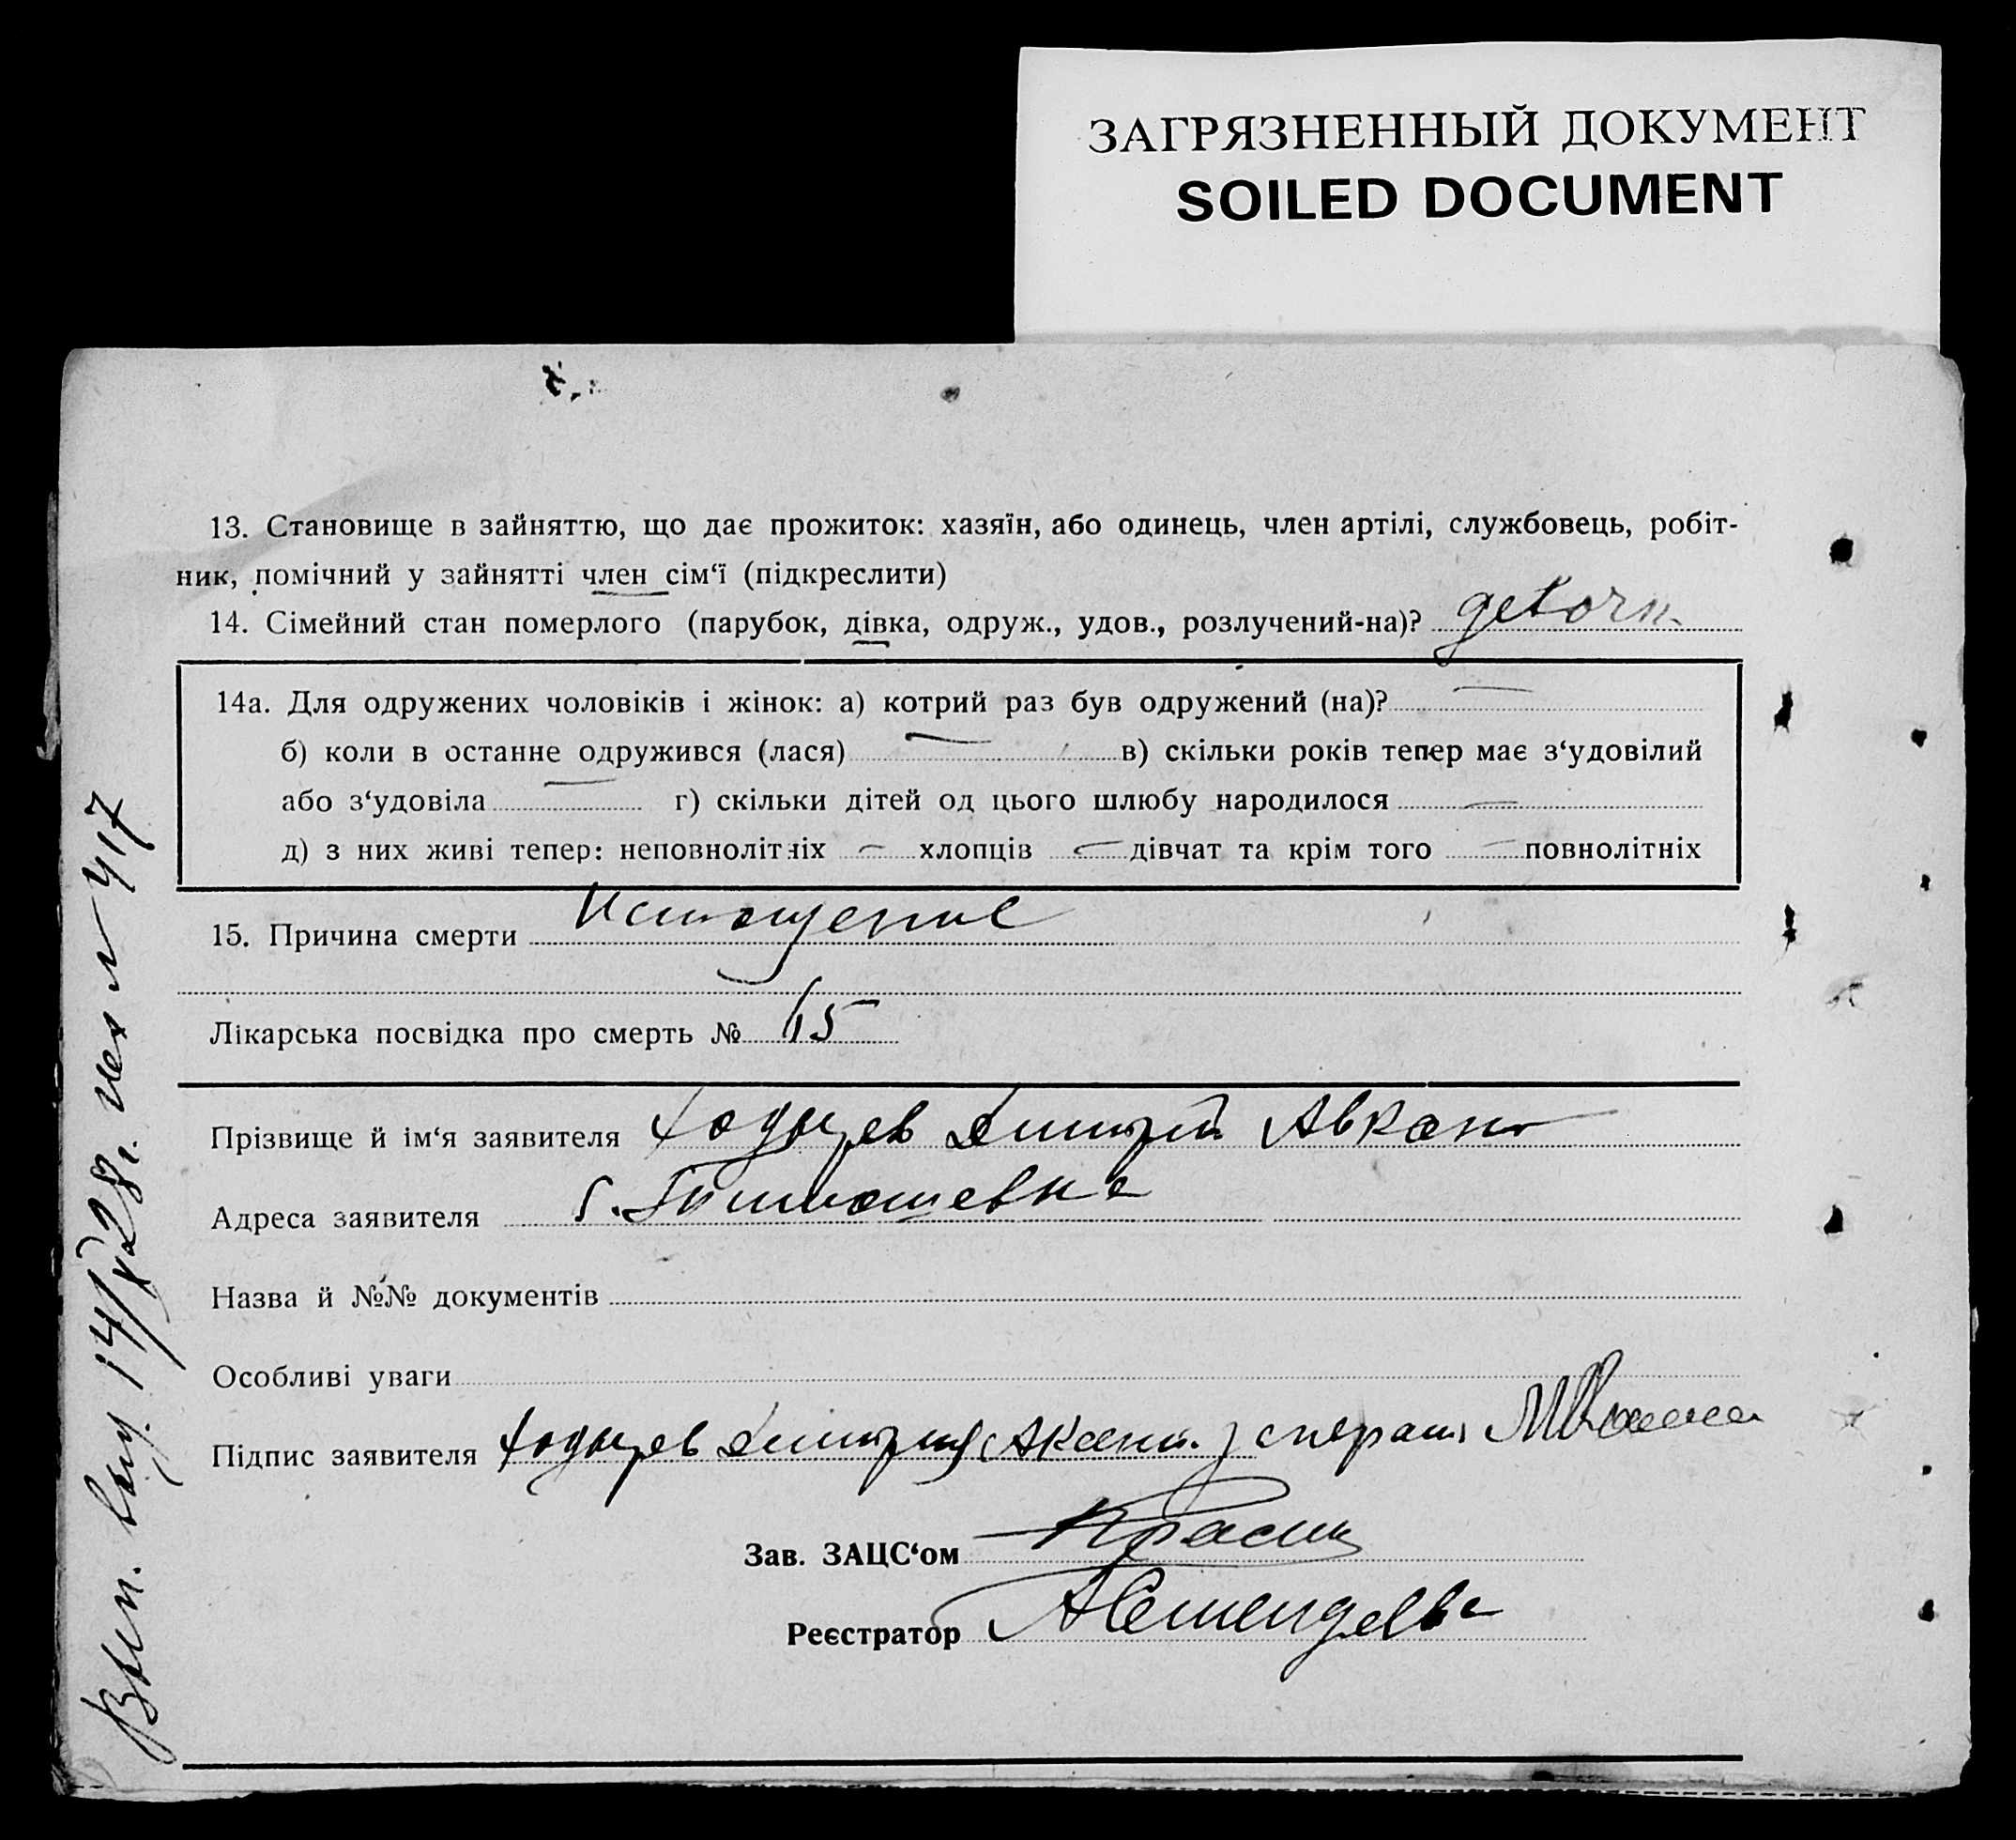 ЗАГРЯЗНЕННЫЙ ДОКУМЕНТ
SOILED DOCUMENT
13. Становище в зайняттю, що дає прожиток: хазяїн, або одинець, член артілі, службовець, робіт-
ник, помічний у зайнятті член сім‘ї (підкреслити)
14. Сімейний стан померлого (парубок, дівка, одруж., удов., розлучений-на)?
14а. Для одружених чоловіків і жінок: а) котрий раз був одружений (на)? —
б) коли в останне одружився (лася) — в) скільки років тепер має з‘удовілий
або з‘удовіла — г) скільки дітей од цього шлюбу народилося —
д) з них живі тепер: неповнолітніх — хлопців — дівчат та крім того — повнолітніх
15. Причина смерти Истощение
Лікарська посвідка про смерть № 15
Прізвище й ім‘я заявителя Ходыцев Дмитрий
Адреса заявителя
Назва й №№ документів
Особливі уваги
Підпис заявителя Ходыцев
Зав. ЗАЦС‘ом
Реєстратор